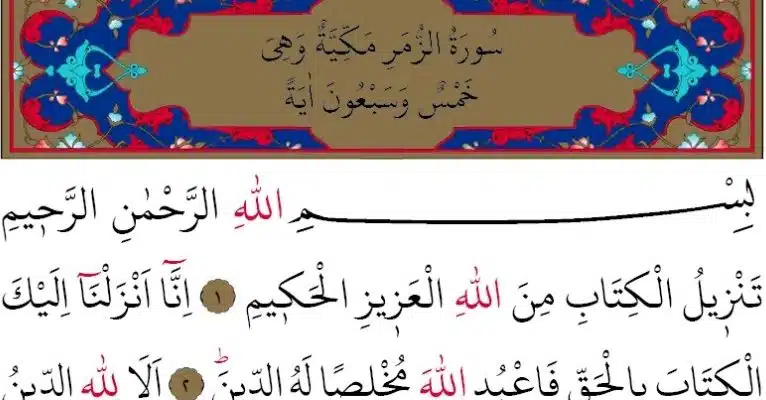 سُورَةُ الزُّمَرِ مَكِّيَّةٌ وَهِىَ
خَمْسٌ وَسَبْعُونَ اٰيَةً
بِسْمِ اللّٰهِ الرَّحْمٰنِ الرَّح۪يمِ
تَنْز۪يلُ الْكِتَابِ مِنَ اللّٰهِ الْعَز۪يزِ الْحَك۪يمِ ﴿١﴾ اِنَّٓا اَنْزَلْنَٓا اِلَيْكَ
الْكِتَابَ بِالْحَقِّ فَاعْبُدِ اللّٰهَ مُخْلِصًا لَهُ الدّ۪ينَۜ ﴿٢﴾ اَلَا لِلّٰهِ الدّ۪ينُ